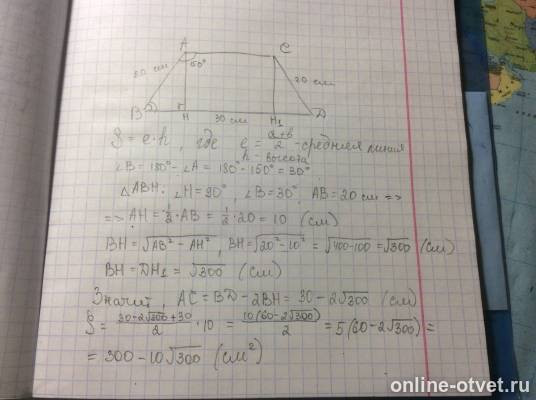 A
C
20 см
150°
20 см
B
H
30 см
H1
D
S = e·h, где e = a+b/2 - средняя линия
h - высота
∠B = 180° - ∠A = 180° - 150° = 30°
△ABH: ∠H = 90°, ∠B = 30°, AB = 20 см =>
=> AH = 1/2 · AB = 1/2 · 20 = 10 (см)
BH = √AB² - AH², BH = √20² - 10² = √400-100 = √300 (см)
BH = DH1 = √300 (см)
Значит, AC = BD - 2BH = 30 - 2√300 (см)
S = 30-2√300+30/2 · 10 = 10(60-2√300)/2 = 5(60-2√300) =
= 300 - 10√300 (см²)
online-otvet.ru